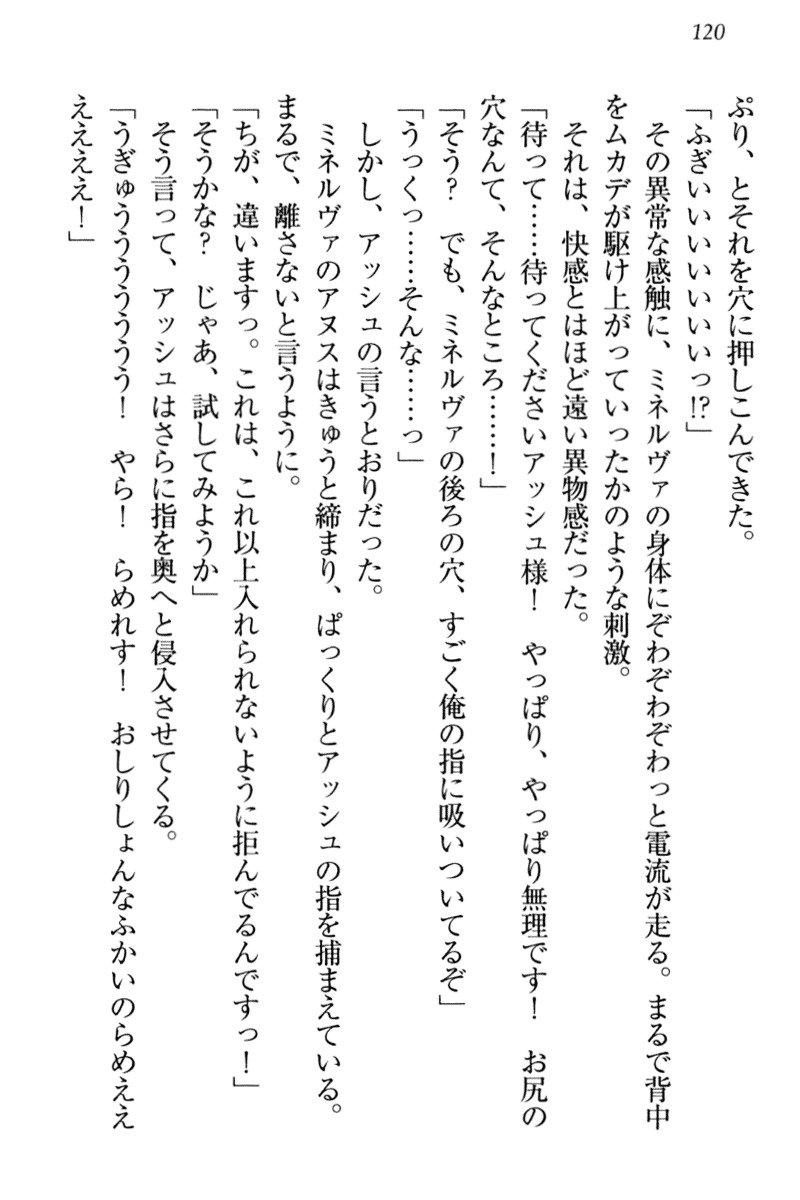 120
ぷり、とそれを穴に押しこんできた。
「ふぎいいいいいいいっ!?」
その異常な感触に、ミネルヴァの身体にぞわぞわぞわっと電流が走る。まるで背中
をムカデが駆け上がっていったかのような刺激。
それは、快感とはほど遠い異物感だった。
「待って……待ってくださいアッシュ様！　やっぱり、やっぱり無理です！　お尻の
穴なんて、そんなところ……！」
「そう？　でも、ミネルヴァの後ろの穴、すごく俺の指に吸いついてるぞ」
「うっくっ……そんな……っ」
しかし、アッシュの言うとおりだった。
ミネルヴァのアヌスはきゅうと締まり、ぱっくりとアッシュの指を捕まえている。
まるで、離さないと言うように。
「ちが、違いますっ。これは、これ以上入れられないように拒んでるんですっ！」
「そうかな？　じゃあ、試してみようか」
そう言って、アッシュはさらに指を奥へと侵入させてくる。
「うぎゅううううううう！　やら！　らめれす！　おしりしょんなふかいのらめええ
ええええ！」